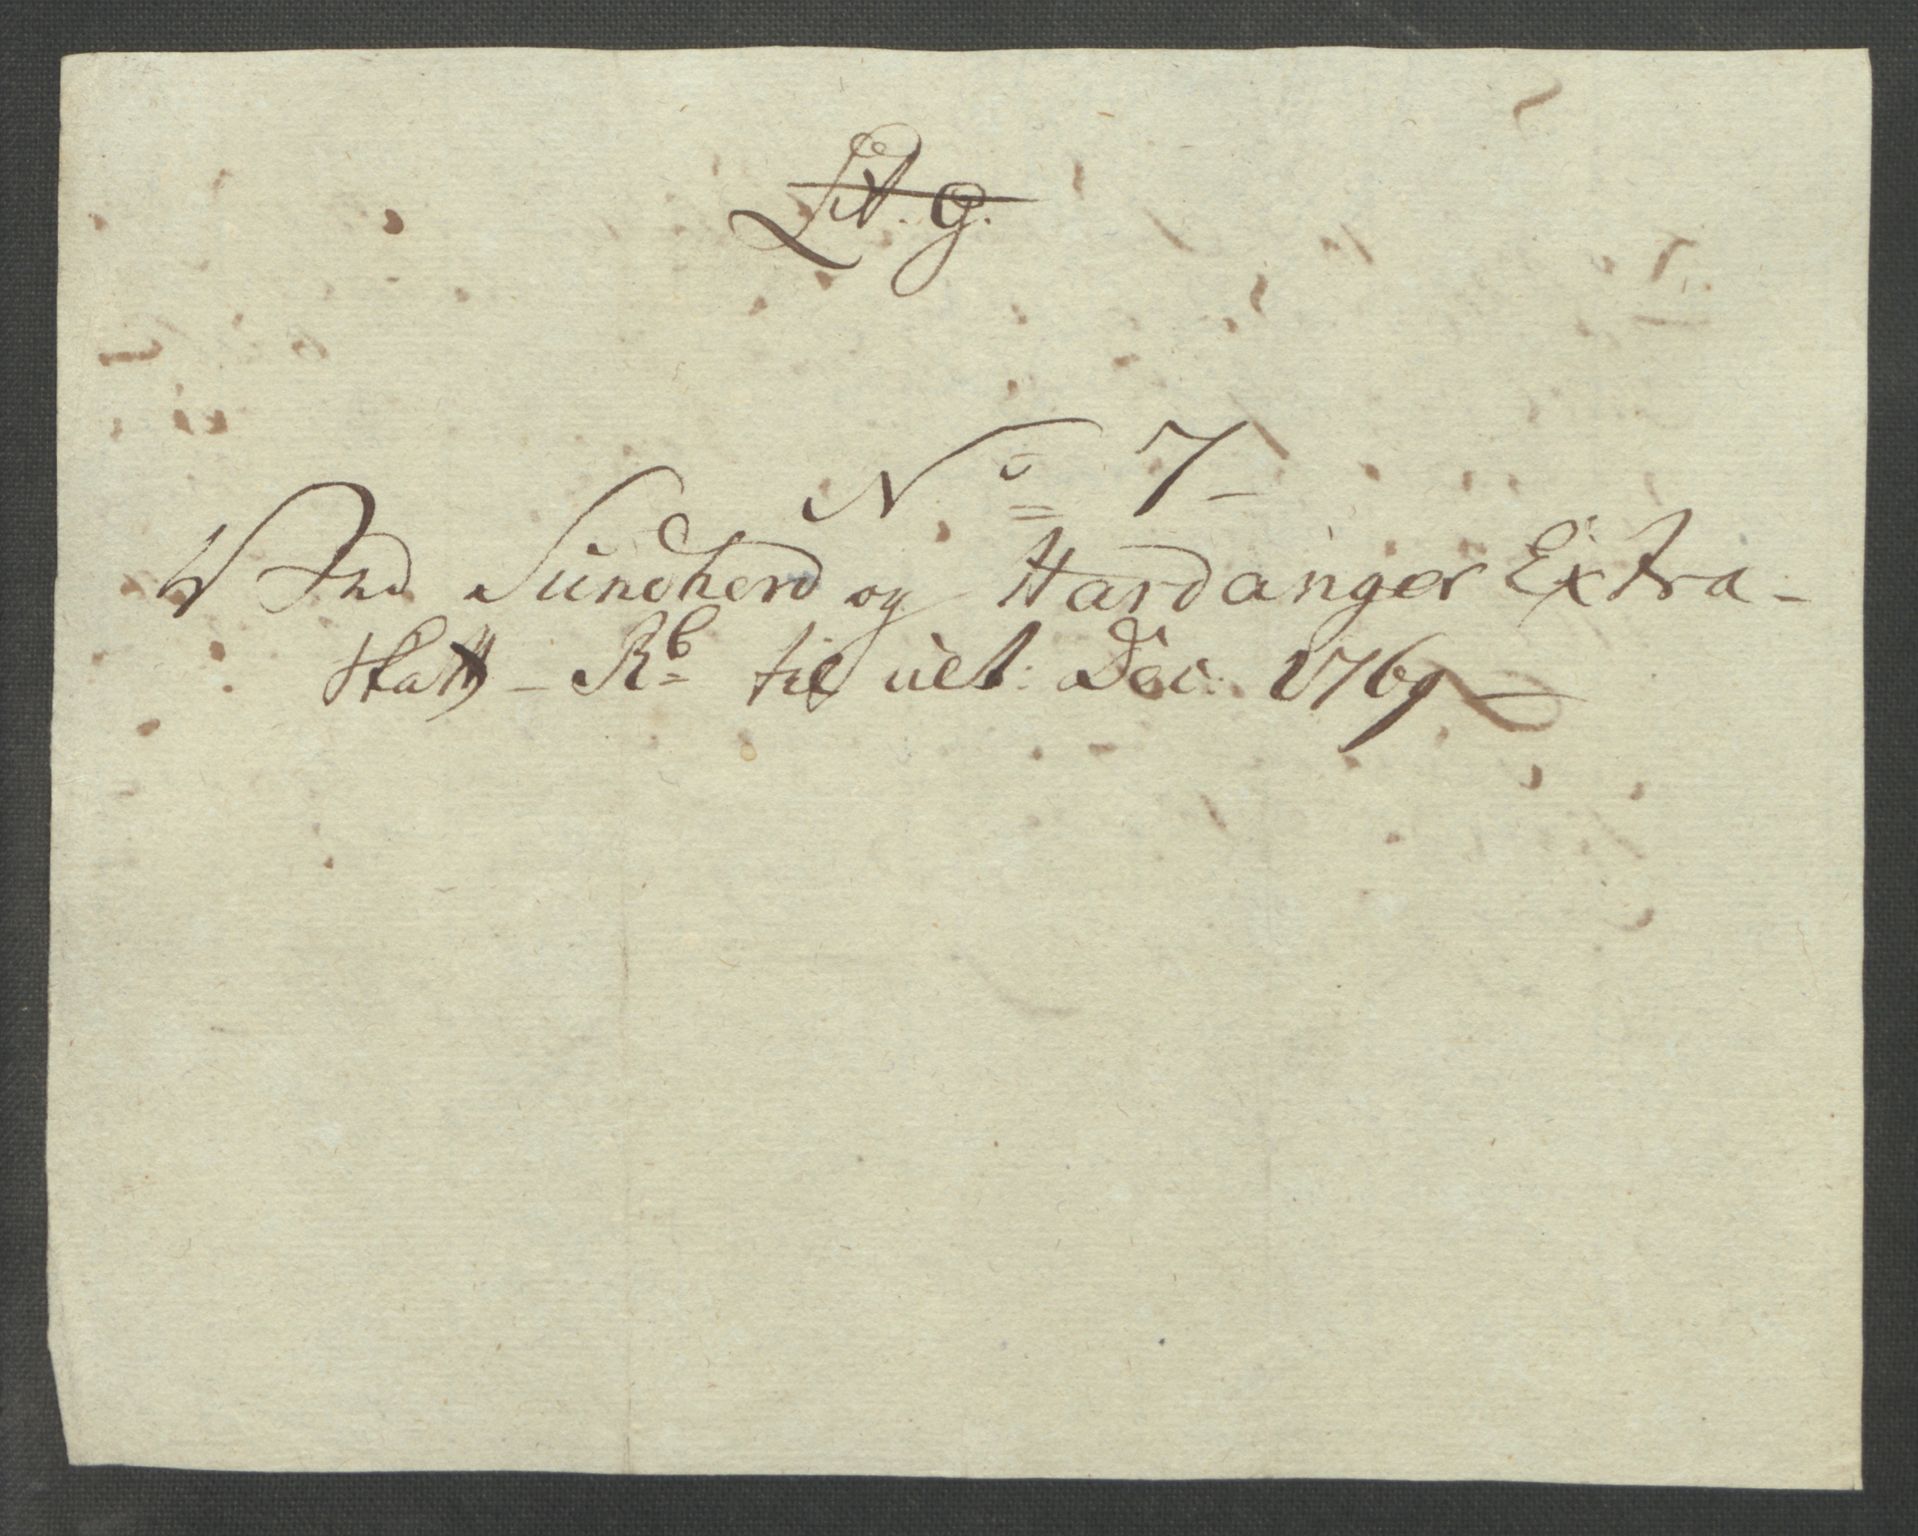 Lit. g.
No 7
Ved Sundherd og Hardanger Extra-
skatt - Rb til ult: Dec: 1769